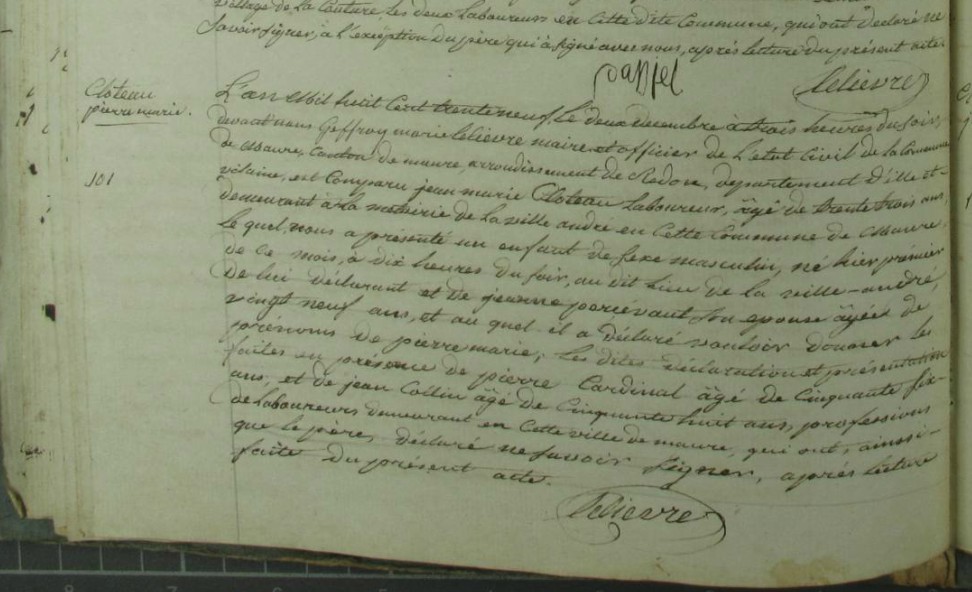 village de la Couture, les deux laboureurs en Cette dite Commune, qui ont déclaré ne
Savoir signer, à l'exception du père qui à signé avec nous, après lecture du présent acte.
danjel
lelievre
Cloteau
pierre marie.
101
L'an Mil huit Cent trente neuf, Le deux decembre à trois heures du soir,
devant nous Geffroy marie lelievre maire et officier de L'etat Civil de la Commune
de Maure, Canton de maure, arroudissement de Redon, departement d'ille et-
vilaine, est Comparu jean marie Cloteau Laboureur, âgé de trente trois ans,
demeurant à la métairie de la ville andré en Cette Commune de Maure,
le quel, nous a présenté un enfant de sexe masculin, né hier premier
de ce mois, à dix heures du soir, au dit lieu de la ville-andré,
de lui déclarant et de jeanne son epouse âgée de
vingt neuf ans, et au quel il a déclaré vouloir donner les
prénoms de pierre marie; les dites déclaration et présentation
faites en présence de pierre Cardinal âgé de Cinquante six-
ans, et de jean Collin âgé de Cinquante huit ans, professions
de laboureurs demeurant en Cette ville de maure, qui ont, ainsi-
que le père, déclaré ne savoir signer, après lecture
faite du présent acte.
lelievre